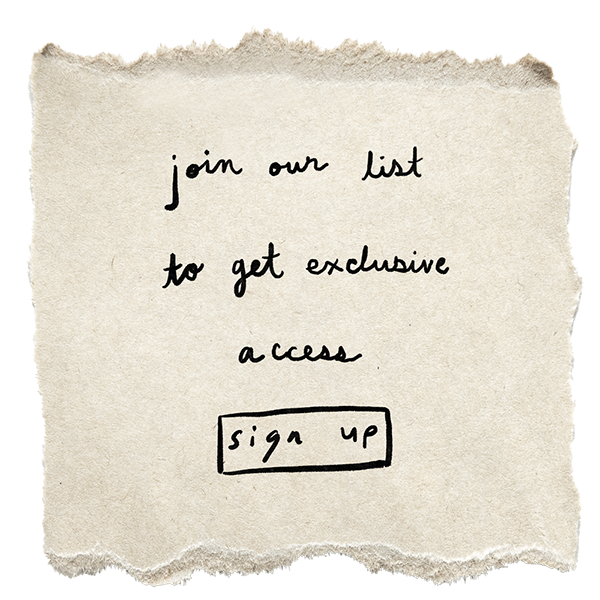 join our list
to get exclusive
access
sign up